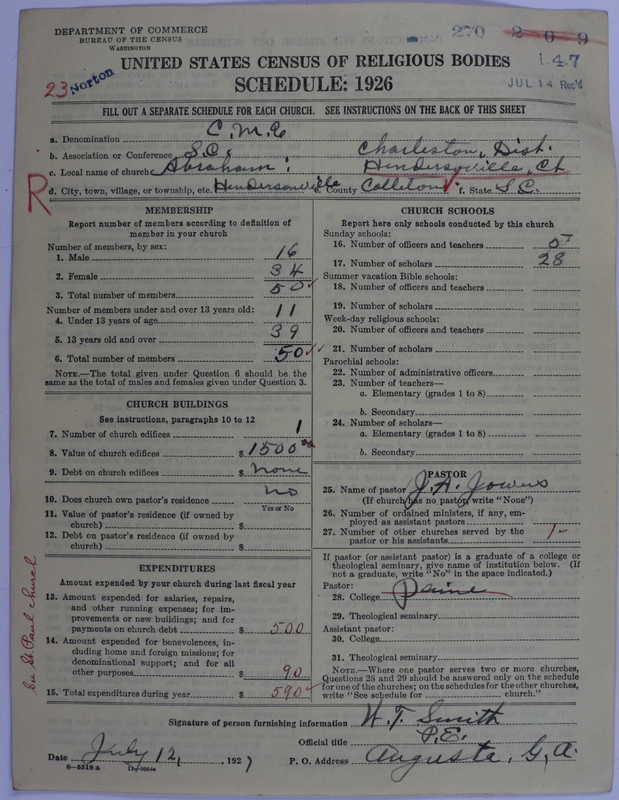 DEPARTMENT OF COMMERCE
BUREAU OF THE CENSUS
WASHINGTON
270 2 0 9
1-47
JUL 14 Rec'd
23 Norton
UNITED STATES CENSUS OF RELIGIOUS BODIES
SCHEDULE: 1926
FILL OUT A SEPARATE SCHEDULE FOR EACH CHURCH. SEE INSTRUCTIONS ON THE BACK OF THIS SHEET
a. Denomination C. M. E
b. Association or Conference S.C. Charleston, Dist.
c. Local name of church Abraham: Hendersonville, Ct
R
d. City, town, village, or township, etc. Hendersonville e. County Colleton f. State S.C.
MEMBERSHIP
Report number of members according to definition of member in your church
Number of members, by sex:
1. Male 16
2. Female 34
3. Total number of members 50
Number of members under and over 13 years old:
4. Under 13 years of age 11
5. 13 years old and over 39
6. Total number of members 50
NOTE.—The total given under Question 6 should be the same as the total of males and females given under Question 3.
CHURCH BUILDINGS
See instructions, paragraphs 10 to 12
7. Number of church edifices 1
8. Value of church edifices $ 1500 00
9. Debt on church edifices $ none
10. Does church own pastor's residence no
Yes or No
11. Value of pastor's residence (if owned by church) $
12. Debt on pastor's residence (if owned by church) $
EXPENDITURES
Amount expended by your church during last fiscal year
13. Amount expended for salaries, repairs, and other running expenses; for improvements or new buildings; and for payments on church debt $ 500
14. Amount expended for benevolences, including home and foreign missions; for denominational support; and for all other purposes $ 90
15. Total expenditures during year $ 590
See St. Paul church
CHURCH SCHOOLS
Report here only schools conducted by this church
Sunday schools:
16. Number of officers and teachers 5
17. Number of scholars 28
Summer vacation Bible schools:
18. Number of officers and teachers
19. Number of scholars
Week-day religious schools:
20. Number of officers and teachers
21. Number of scholars
Parochial schools:
22. Number of administrative officers
23. Number of teachers—
a. Elementary (grades 1 to 8)
b. Secondary
24. Number of scholars—
a. Elementary (grades 1 to 8)
b. Secondary
PASTOR
25. Name of pastor J. A. Jowers
(If church has no pastor, write "None")
26. Number of ordained ministers, if any, employed as assistant pastors
27. Number of other churches served by the pastor or his assistants 1
If pastor (or assistant pastor) is a graduate of a college or theological seminary, give name of institution below. (If not a graduate, write "No" in the space indicated.)
Pastor:
28. College Paine
29. Theological seminary
Assistant pastor:
30. College
31. Theological seminary
NOTE.—Where one pastor serves two or more churches, Questions 28 and 29 should be answered only on the schedule for one of the churches; on the schedules for the other churches, write "See schedule for church."
Signature of person furnishing information W. T. Smith
Official title P.E.
Date July 12, 1927 P. O. Address Augusta, G.A.
8—5518 a